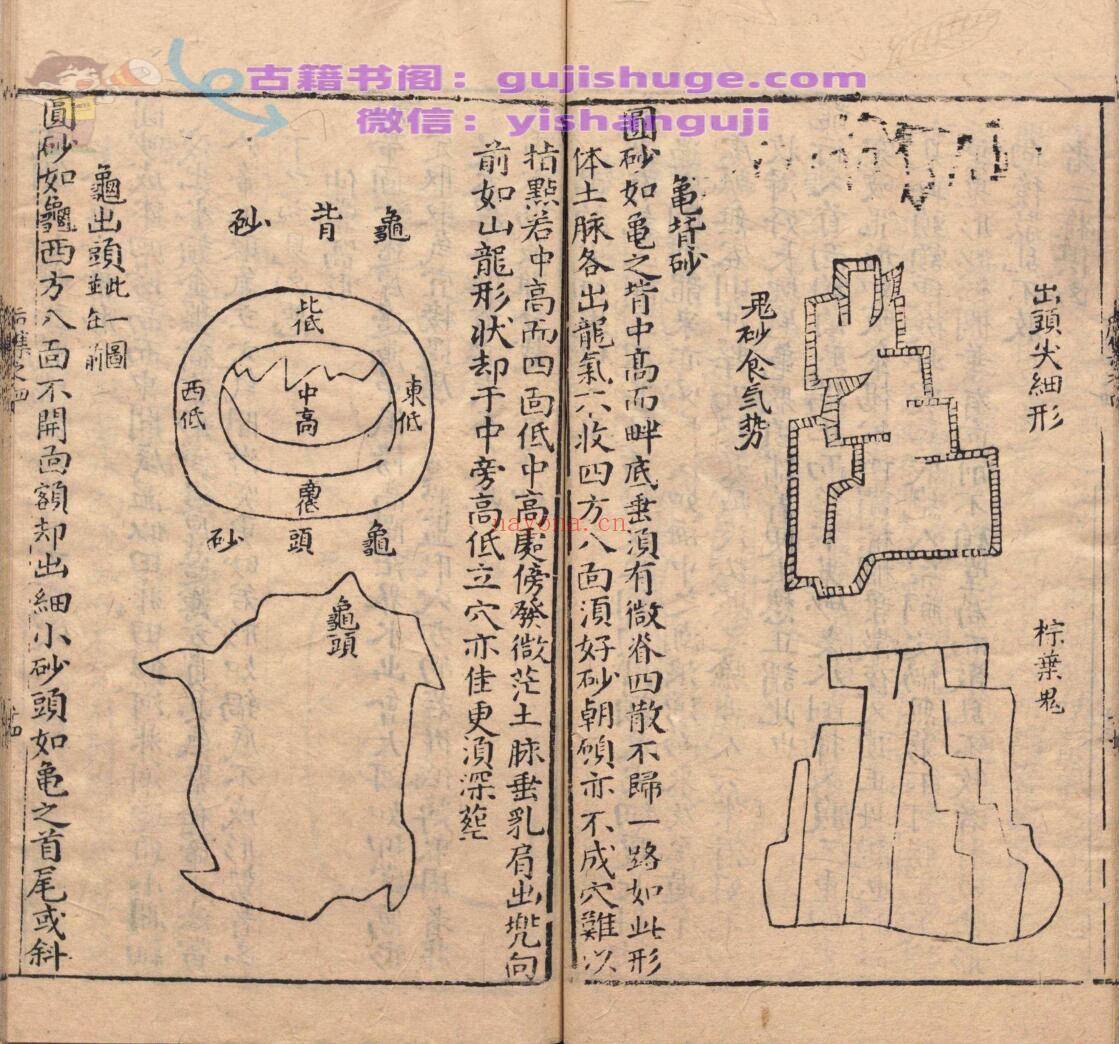 古籍书阁：gujishuge.com
微信：yishanguji
出頭尖細形
棕葉鬼
鬼砂食气势
亀背砂
圓砂如亀之背中高而畔底垂湏有微脊四散不歸一路如此形
体土脉各出龍氣不收四方八面湏好砂朝碩亦不成穴難以
指點若中高而四面低中高處傍發微茫土脉垂乳肩出兠向
前如山龍形状却于中旁高低立穴亦佳更湏深葬
龜背砂
北低
東低
中高
西低
龜頭砂
龜頭
龜出頭此一圖並在前
圓砂如龜西方八面不開面額却出細小砂頭如亀之首尾或斜
nayona.cn